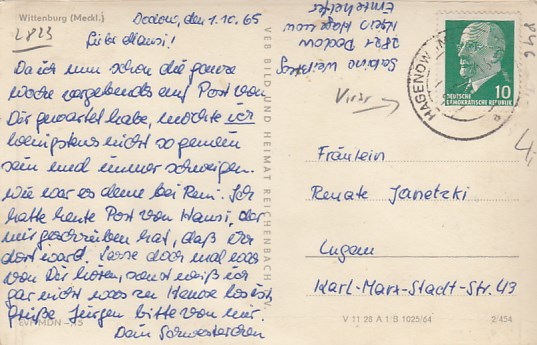 Wittenburg (Meckl.)
2823
Dodow, den 1.10.65
Liebe Mausi!
Da ich nun schon die ganze
Woche vergebends auf Post von
Dir gewartet habe, möchte ich
wenigstens nicht so gemein
sein und immer schweigen.
Wie war es denn bei Reni. Ich
hatte heute Post von Hansi, der
mir geschrieben hat, daß Ihr
dort ward. Lasse doch mal was
von Dir hören, sonst weiß ich
gar nicht was zu Hause los ist.
Grüße Jürgen bitte von mir.
Dein Schwesterchen
EVP MDN
VEB BILD UND HEIMAT REICHENBACH
Sabine
2821 Dodow
Kreis Hagenow
Erntehelfer
HAGENOW
10
DEUTSCHE
DEMOKRATISCHE REPUBLIK
Fräulein
Renate Janetzki
Lugau
Karl-Marx-Stadt-Str. 43
V 11 28 A 1/B 1025/64
2/454